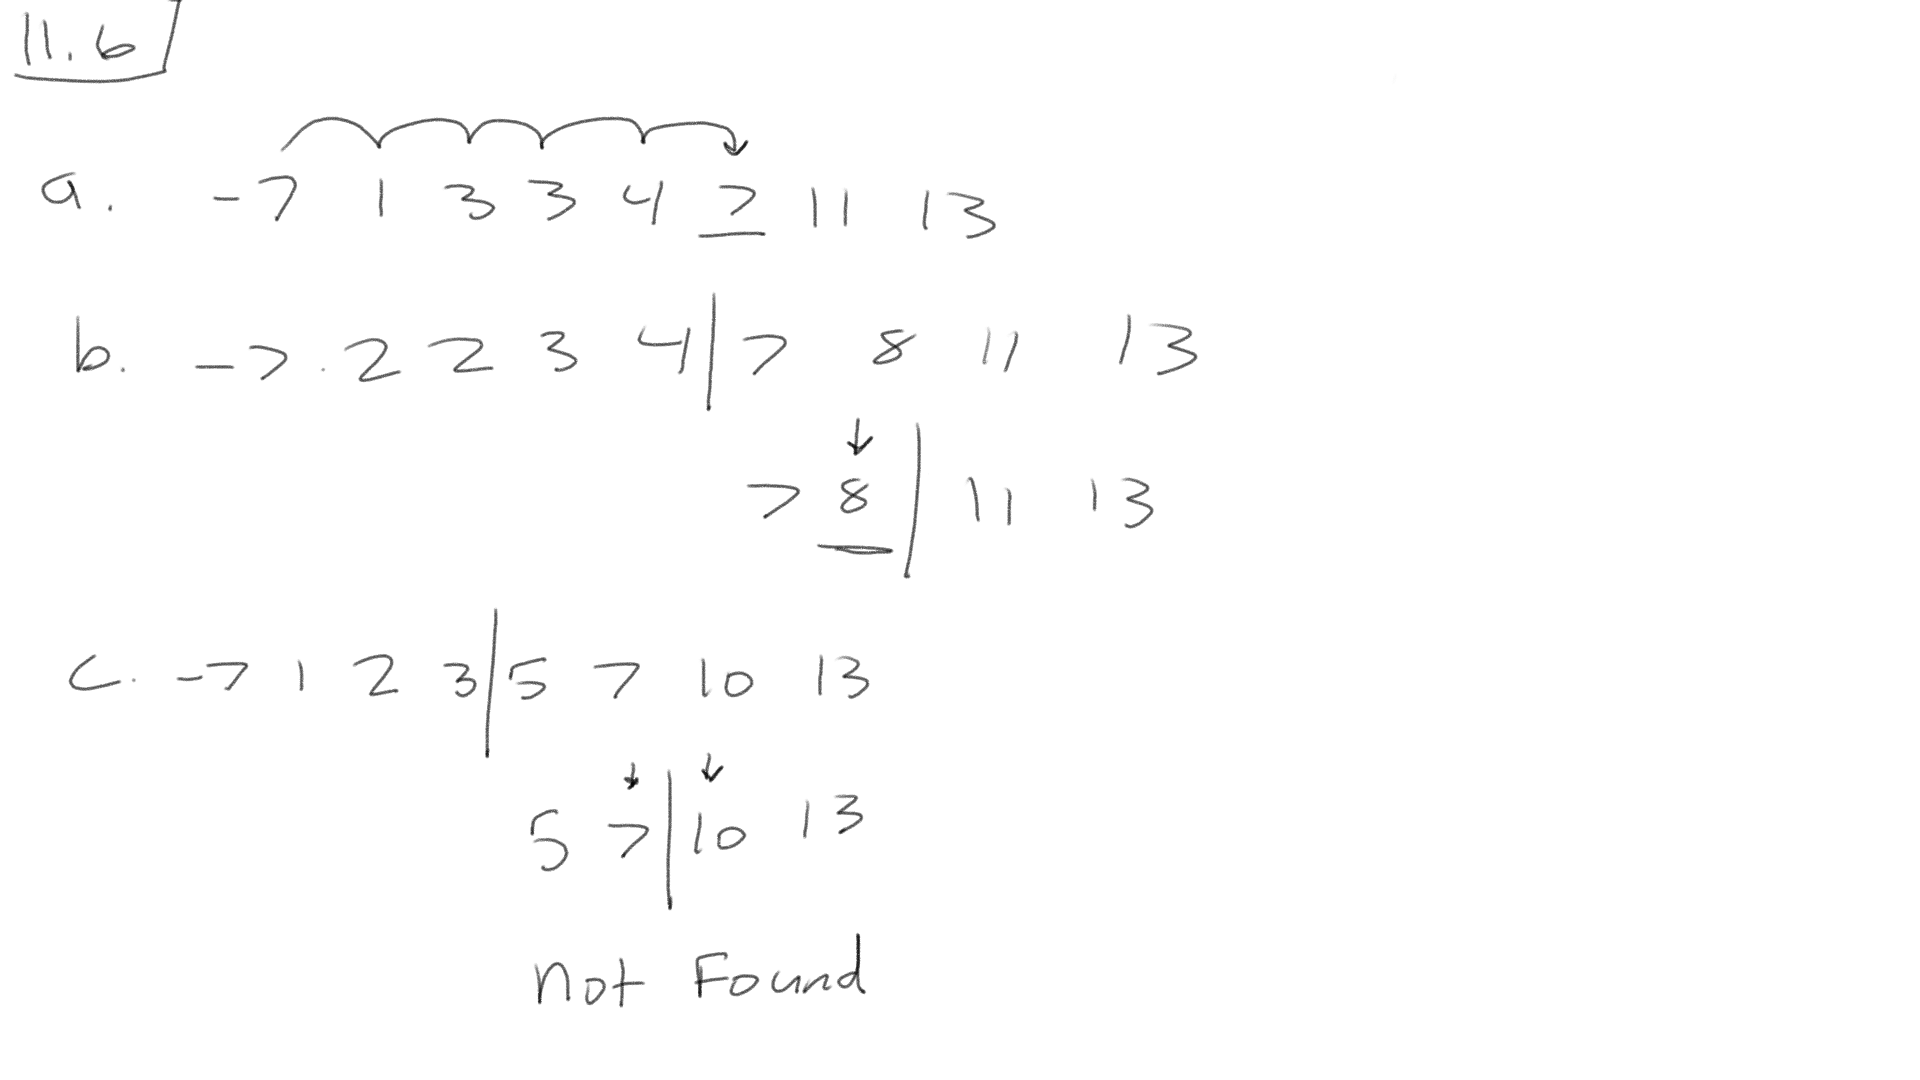 11.6
a. -7 1 3 3 4 7 11 13
b. -7 2 2 3 4 | 7 8 11 13
7 8 | 11 13
c. -7 1 2 3 | 5 7 10 13
5 7 | 10 13
not Found